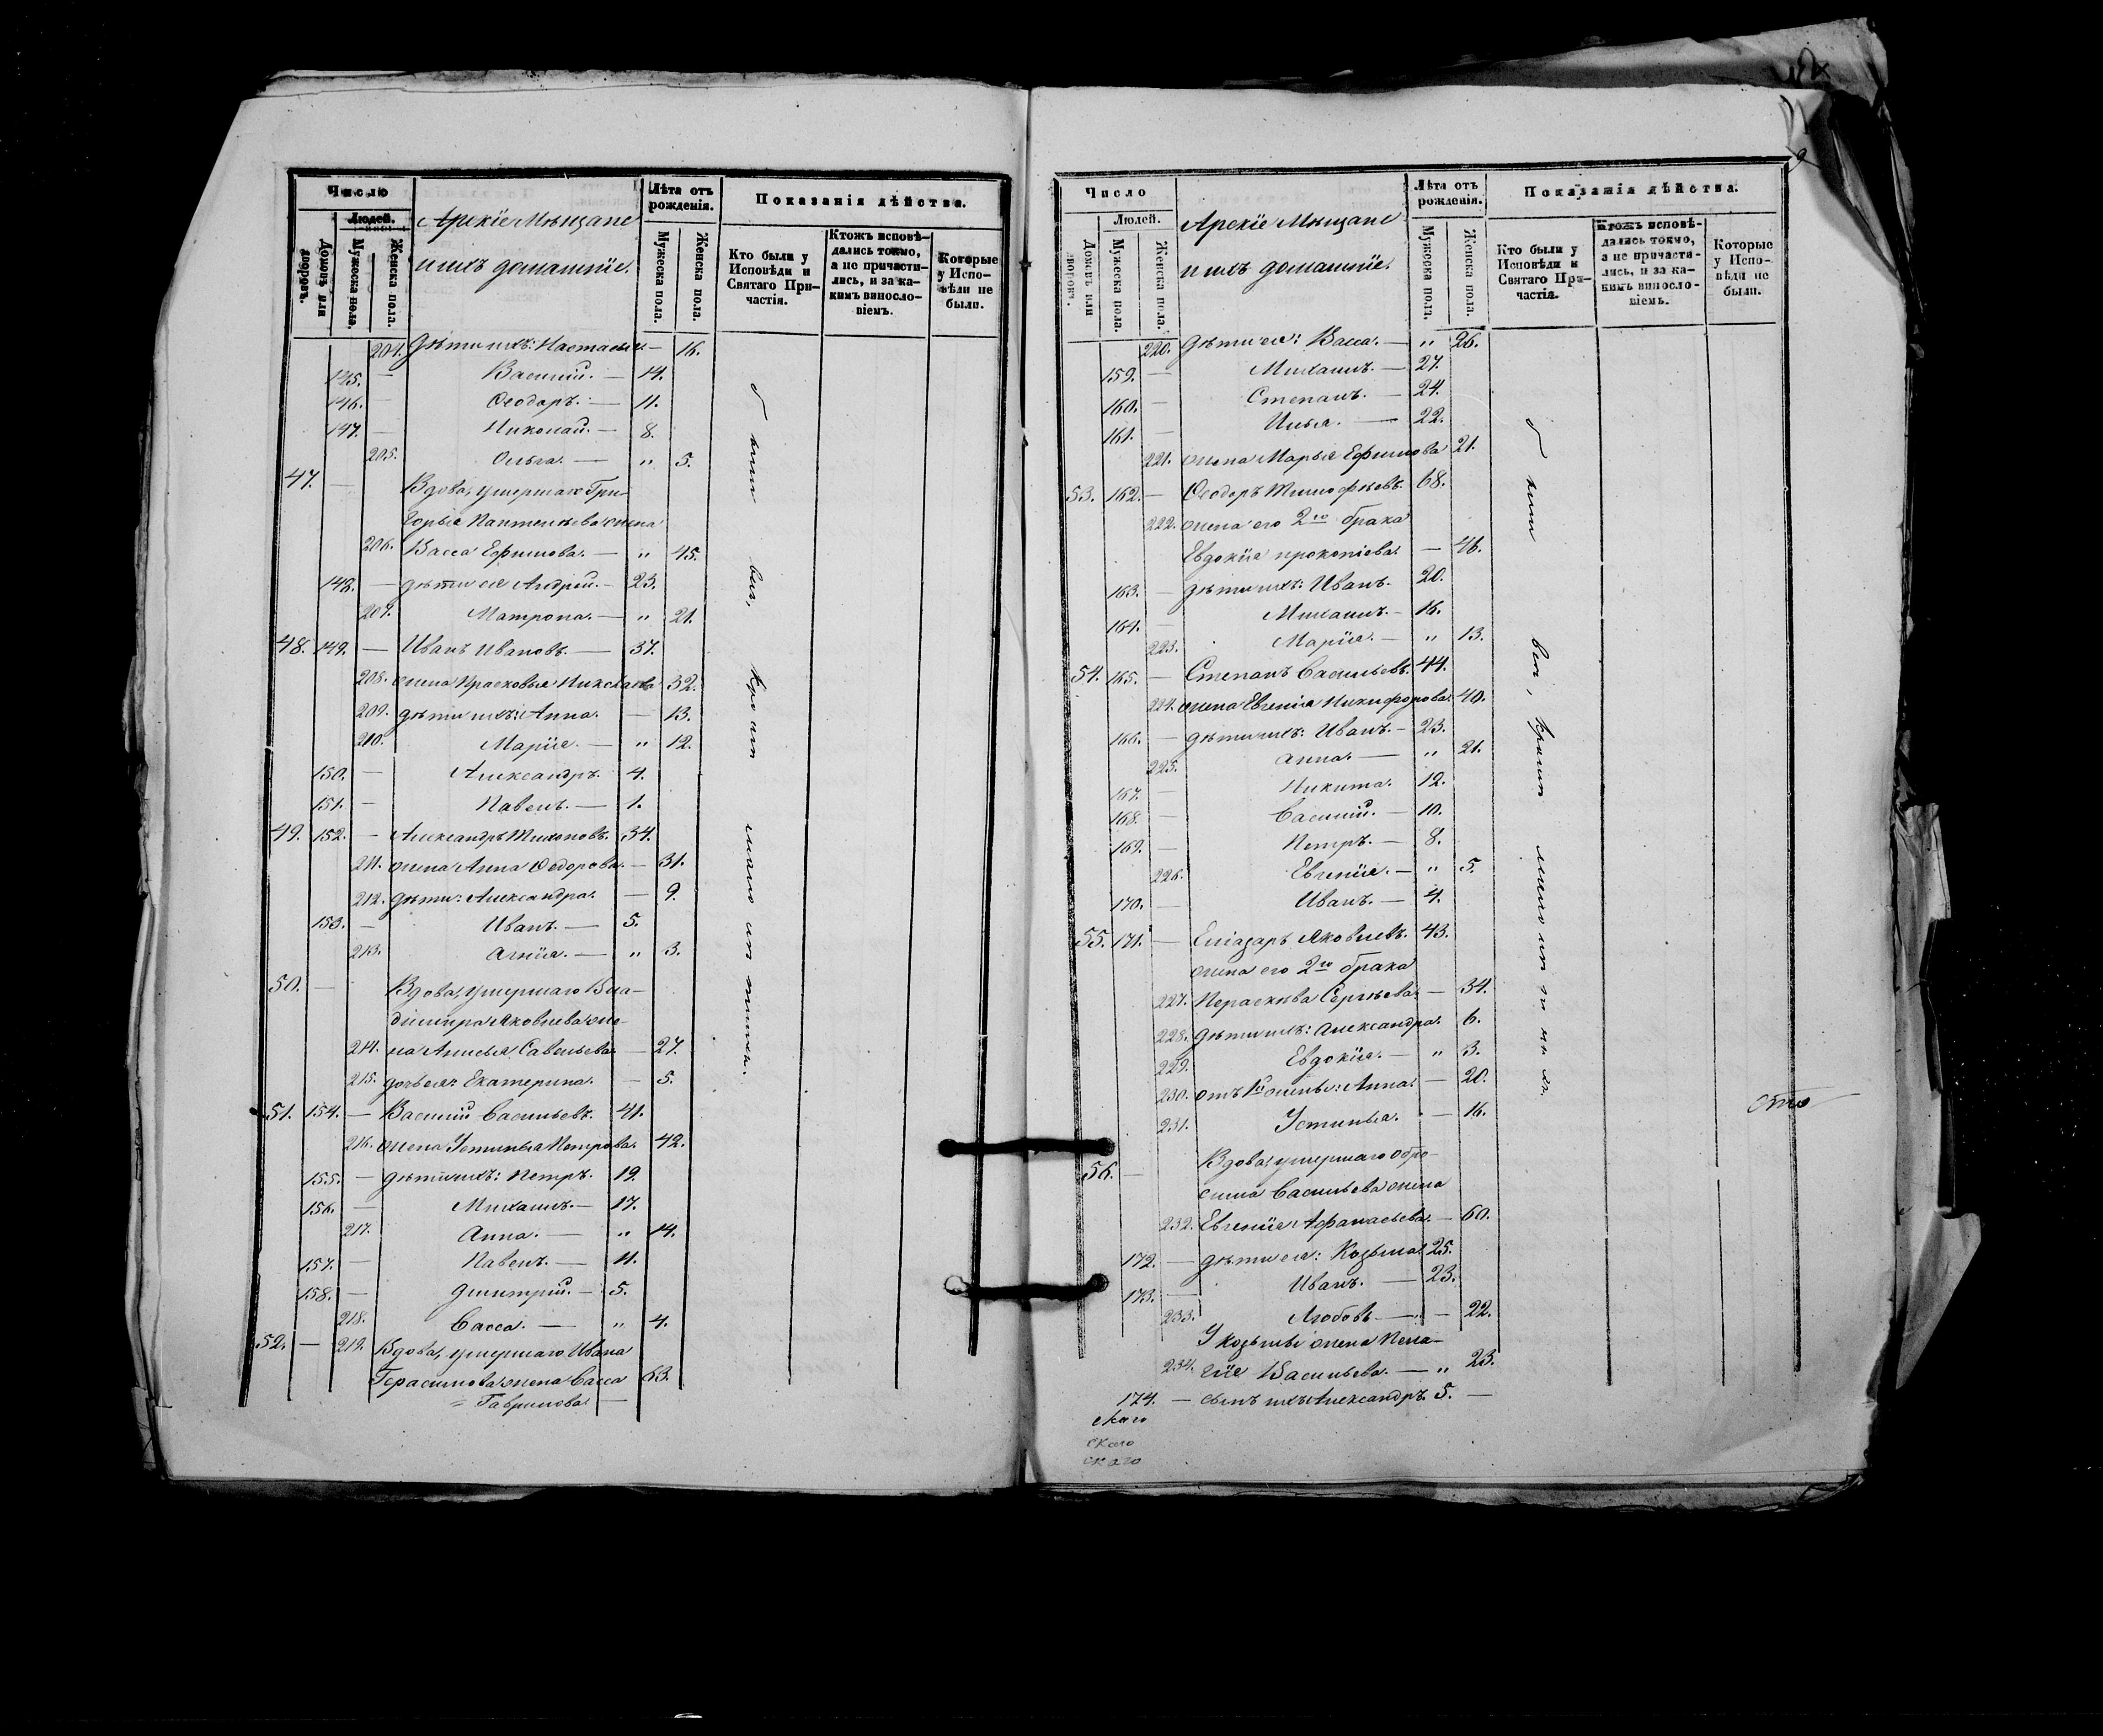 Число
Людей.
Домовъ или дворовъ.
Мужеска пола.
Женска пола.
Арскіе Мѣщане
и ихъ домашніе.
Лѣта отъ рожденія.
Мужеска пола.
Женска пола.
Показанія дѣйства.
Кто были у Исповѣди и Святаго Причастія.
Ктожъ исповѣ-
дались токмо,
а не причасти-
лись, и за ка-
кимъ виносло-
віемъ.
Которые
у Испо-
вѣди не
были.
204. дѣти ихъ: Настасья — 16.
145. — Василий. — 14.
146. — Ѳеодоръ. — 11.
147. — Николай. — 8.
205. Ольга. — „ 5.
47. — Вдова, умершаго Гри-
горья Пантелѣева жена
206. Васса Ефимова. — „ 45.
148. — дѣти ея Андрей. — 23.
207. Матрона. — „ 21.
48. 149. — Иванъ Ивановъ. — 37.
208. жена Прасковья Николаева 32.
209. дѣти ихъ: Анна. — 13.
210. Марія. — „ 12.
150. — Александръ. 4.
151. — Павелъ. — 1.
49. 152. — Александръ Тихоновъ. 34.
211. жена Анна Ѳедорова. — 31.
212. дѣти: Александра. — 9.
153. — Иванъ. — 5.
213. Агнія. — „ 3.
50. — Вдова, умершаго Вла-
диміра Яковлева же-
214. на Анисья Савельева. — 27.
215. дочь ея: Екатерина. — 5.
51. 154. — Василий Васильевъ. 41.
216. жена Устинья Петрова. 42.
155. — дѣти ихъ: Петръ. 19.
156. — Михаилъ. — 17.
217. Анна. — „ 14.
157. — Павелъ. — 11.
158. — Дмитрий. — 5.
218. Васса. — „ 4.
52. — 219. Вдова, умершаго Ивана
Герасимова жена Васса 63.
= Гаврилова —
были вси, кромѣ малолѣтнихъ.
Число
Людей.
Домовъ или дворовъ.
Мужеска пола.
Женска пола.
Арскіе Мѣщане
и ихъ домашніе.
Лѣта отъ рожденія.
Мужеска пола.
Женска пола.
Показанія дѣйства.
Кто были у Исповѣди и Святаго Причастія.
Ктожъ исповѣ-
дались токмо,
а не причасти-
лись, и за ка-
кимъ виносло-
віемъ.
Которые
у Испо-
вѣди не
были.
9
220. дѣти ея: Васса. — „ 26.
159. — Михаилъ. — 27.
160. — Степанъ. — 24.
161. — Илья. — 22.
221. жена Марья Ефимова 21.
53. 162. — Ѳеодоръ Тимофѣевъ. 68.
222. жена его 2го брака
Евдокія прокопіева. — 46.
163. — дѣти ихъ: Иванъ. 20.
164. — Михаилъ. — 16.
223. Марія. — „ 13.
54. 165. — Степанъ Васильевъ. 44.
224. жена Евгенія Никифорова. 40.
166. — дѣти ихъ: Иванъ. — 23.
225. Анна. — „ 21.
167. — Никита. 12.
168. — Василий. — 10.
169. — Петръ. — 8.
226. Евгенія. — „ 5.
170. — Иванъ. — 4.
55. 171. — Еліазаръ Яковлевъ. 43.
жена его 2го брака
227. Параскева Сергѣева. — 34.
228. дѣти ихъ: Александра. 6.
229. Евдокія. — „ 3.
230. отъ 1й жены: Анна. — 20.
231. Устинья. — 16.
56. — Вдова, умершаго Обро-
сима Васильева жена
232. Евгенія Афанасьева. — 60.
172. — дѣти ея: Козьма. 25.
173. — Иванъ. — 23.
233. Любовь — — 22.
У козьмы жена Пела-
234. гія Васильева. — „ 23.
174. — сынъ ихъ Александръ. 5. —
скаго
скаго
скаго
были вси, кромѣ малолѣтнихъ.